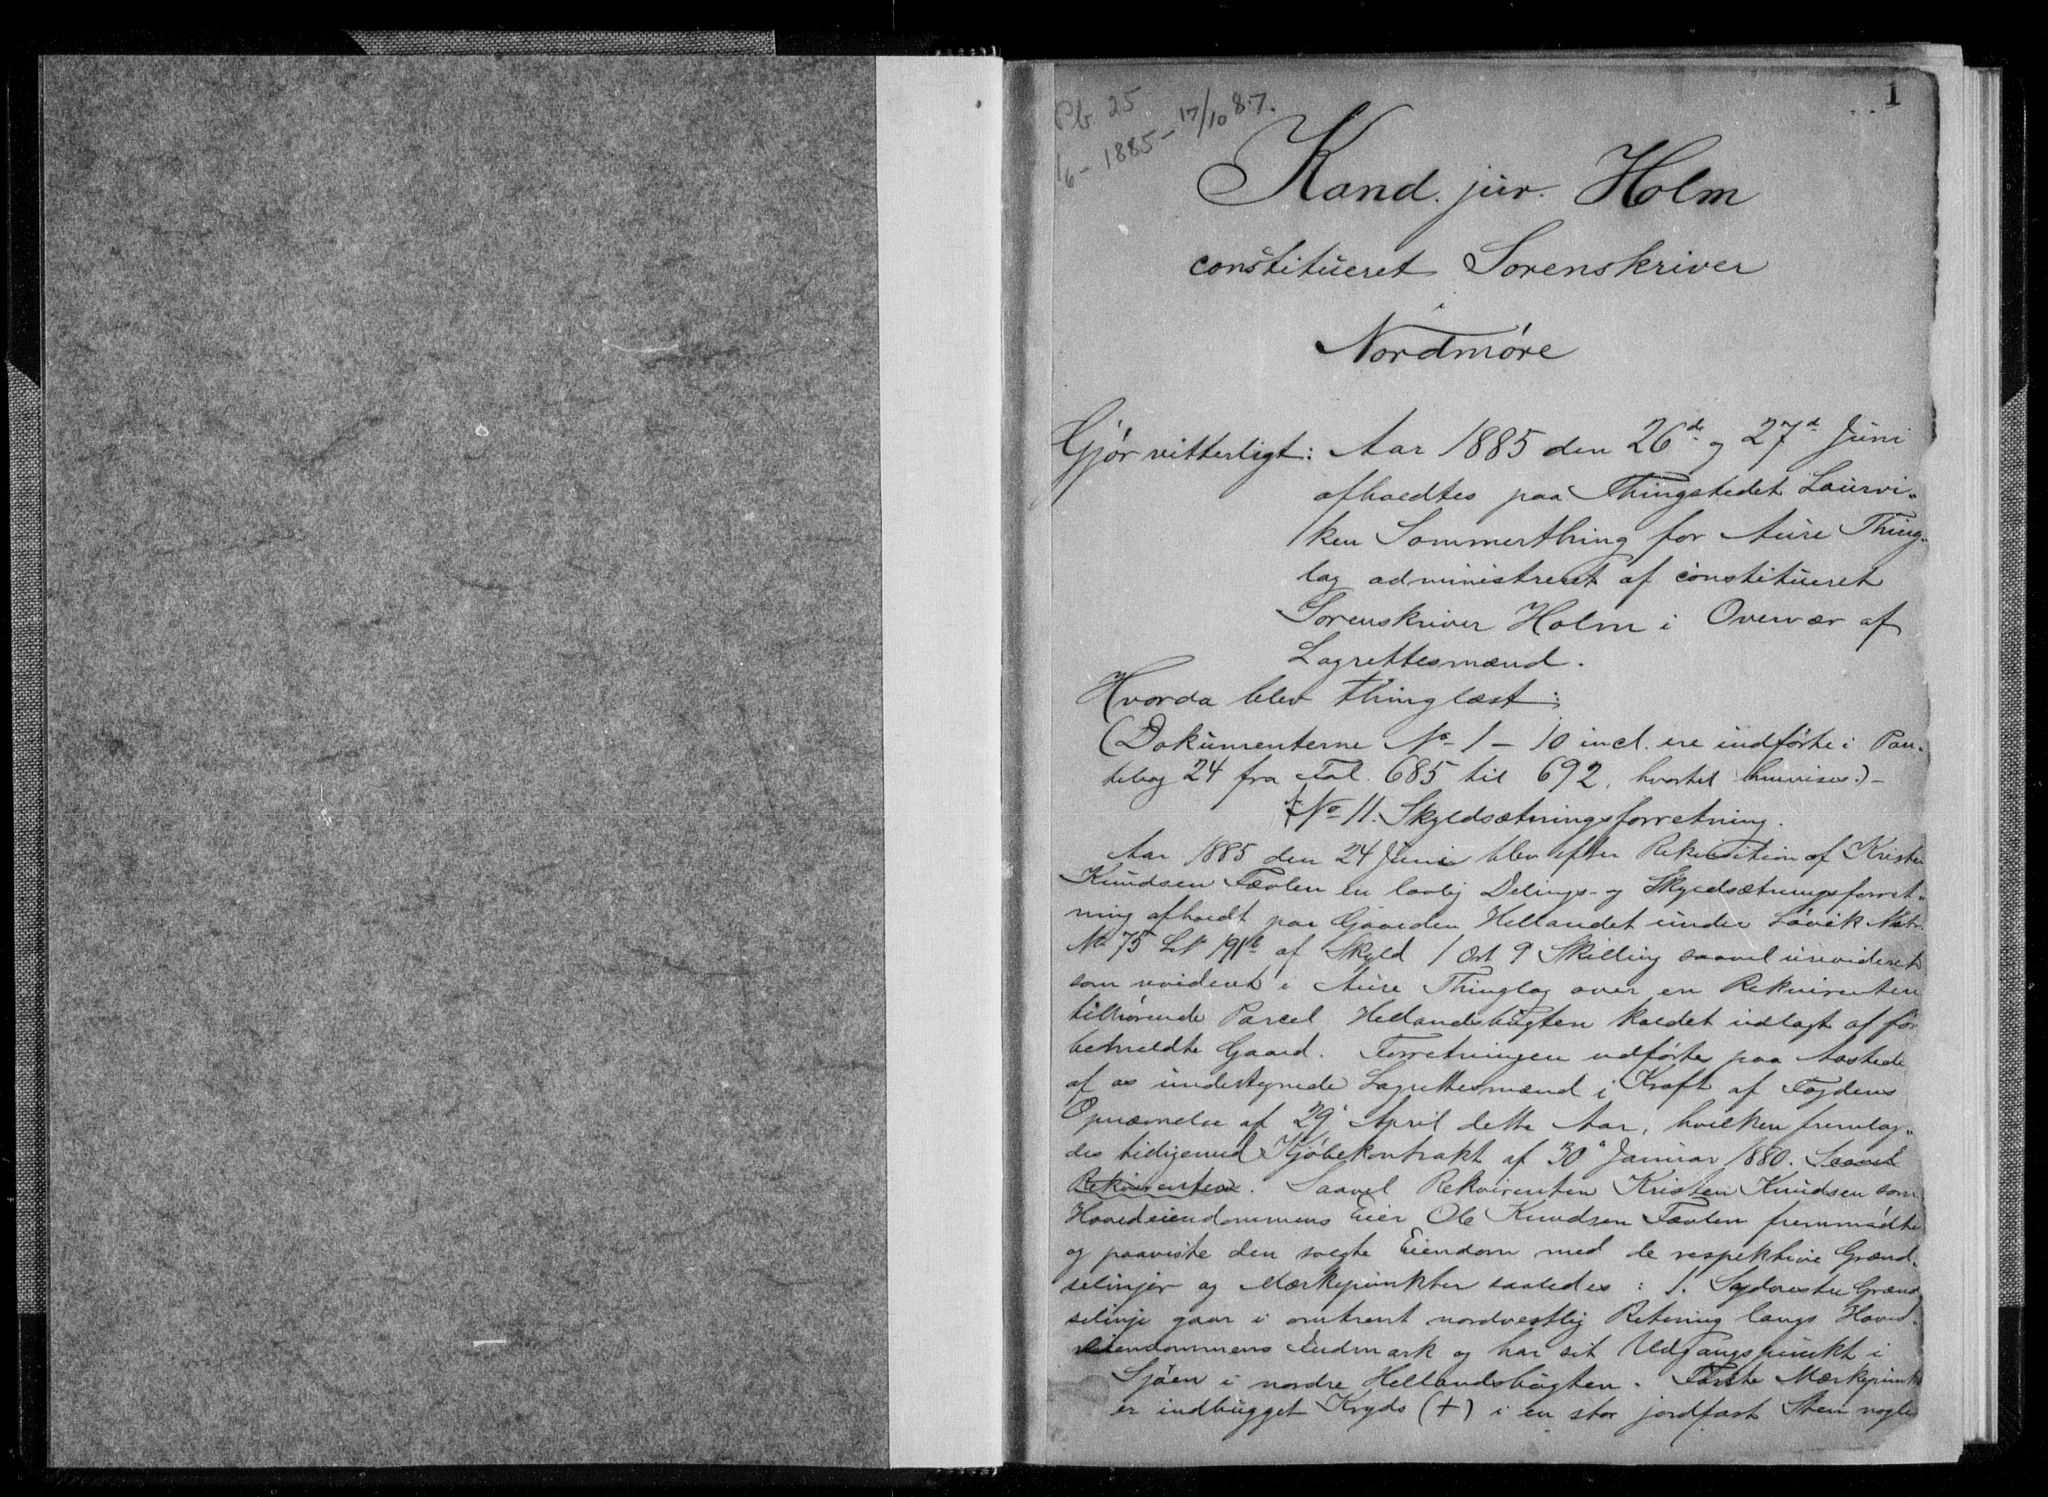 1
Pb. 25
1/6 - 1885 - 17/10 87.
Kand. jur. Holm
constitueret Sorenskriver
i
Nordmøre
Gjør vitterligt: Aar 1885 den 26de og 27d Juni
afholdtes paa Thingstedet Laurvi-
ken Sommerthing for Aure Thing-
lag administreret af constitueret
Sorenskriver Holm i Overvær af
Lagrettesmænd.
Hvorda blev thinglæst:
(Dokumenterne No 1 - 10 incl. ere indførte i Pan-
tebog 24 fra Fol. 685 til 692, hvortil henvises.) -
No 11. Skyldsætningsforretning.
Aar 1885 den 24 Juni blev efter Rekvisition af Kristen
Knudsen Tævlen en lovlig Delings- og Skyldsætningsforret-
ning afholdt paa Gaarden Hellandet under Løvik Mat-
No 75 LN 191b af Skyld 1 Ort 9 Skilling saavel urevideret
som revideret i Aure Thinglag over en Rekvirenten
tilhørende Parcel Hellandsbugten kaldet udlagt af for-
bemeldte Gaard. Forretningen udførtes paa Aastede
af os undertegnede Lagrettesmænd i Kraft af Fogdens
Opnævnelse af 29 April dette Aar, hvilken fremlag-
des tidligemed Kjøbekontrakt af 30 Januar 1880. Saavel
Rekvirenten. Saavel Rekvirenten Kristen Knudsen som
Hovedeiendommens Eier Ole Knudsen Tævlen fremmødte
og paaviste den solgte Eiendom med de respektive Grænd-
selinjer og Mærkepunkter saaledes: 1. Sydvestre Grænd
selinje gaar i omtrent nordvestlig Retning langs Hoved-
eiendommens Indmark og har sit Udgangspunkt i
Sjøen i nordre Hellandsbugten. Første Mærkepunkt
er indhugget Kryds (+) i en stor jordfast Sten nogle